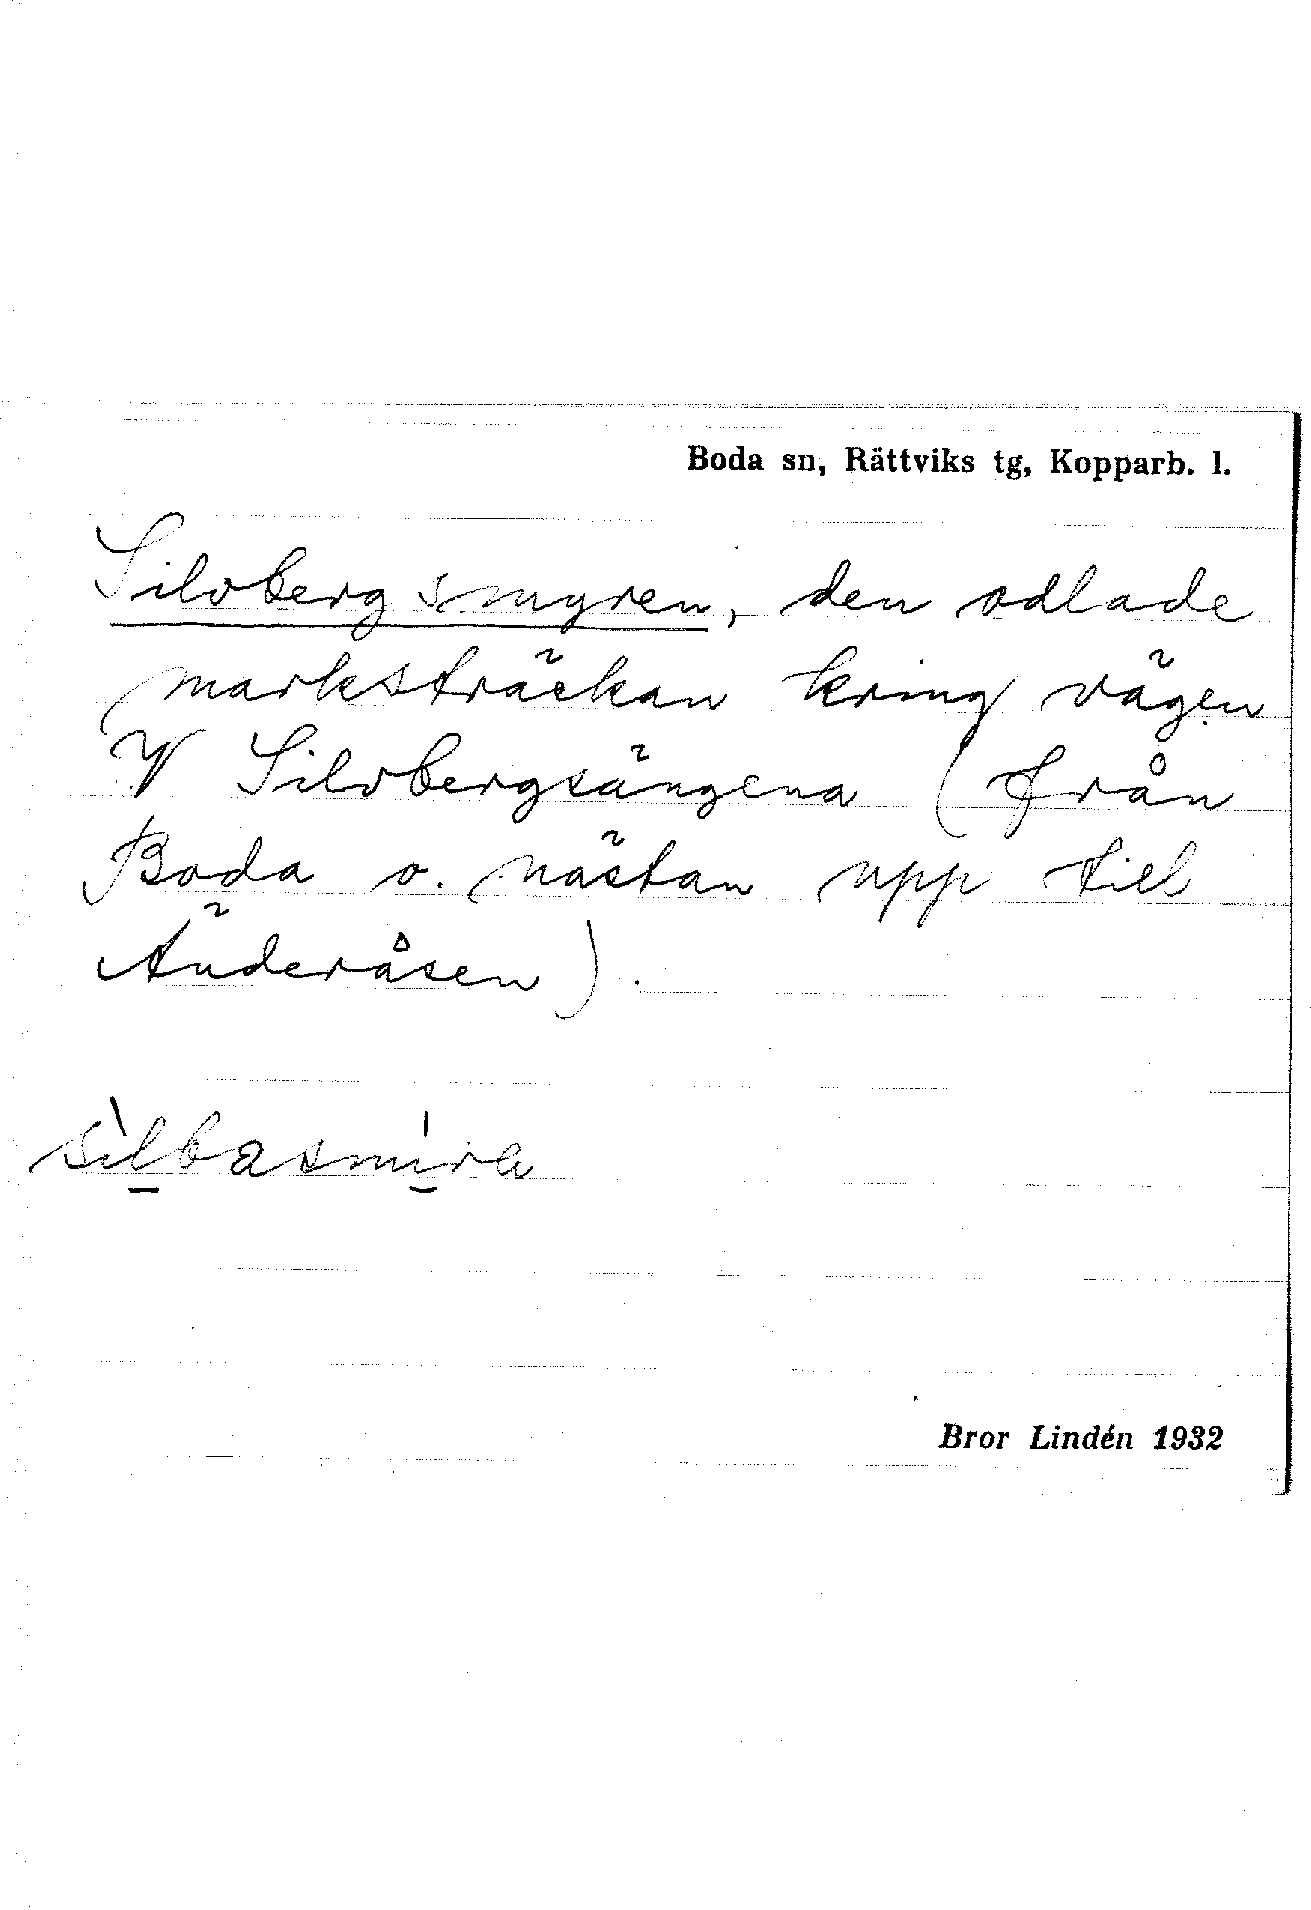 Boda sn, Rättviks tg, Kopparb. l.
Silvbergsmyren, den odlade
marksträckan kring vägen
V Silvbergsängena (från
Boda o. nästan upp till
Änderåsen).
sìlbasmíra
Bror Lindén 1932